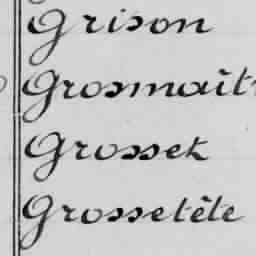 Grison
Grosmaît
Grossek
Grossetête